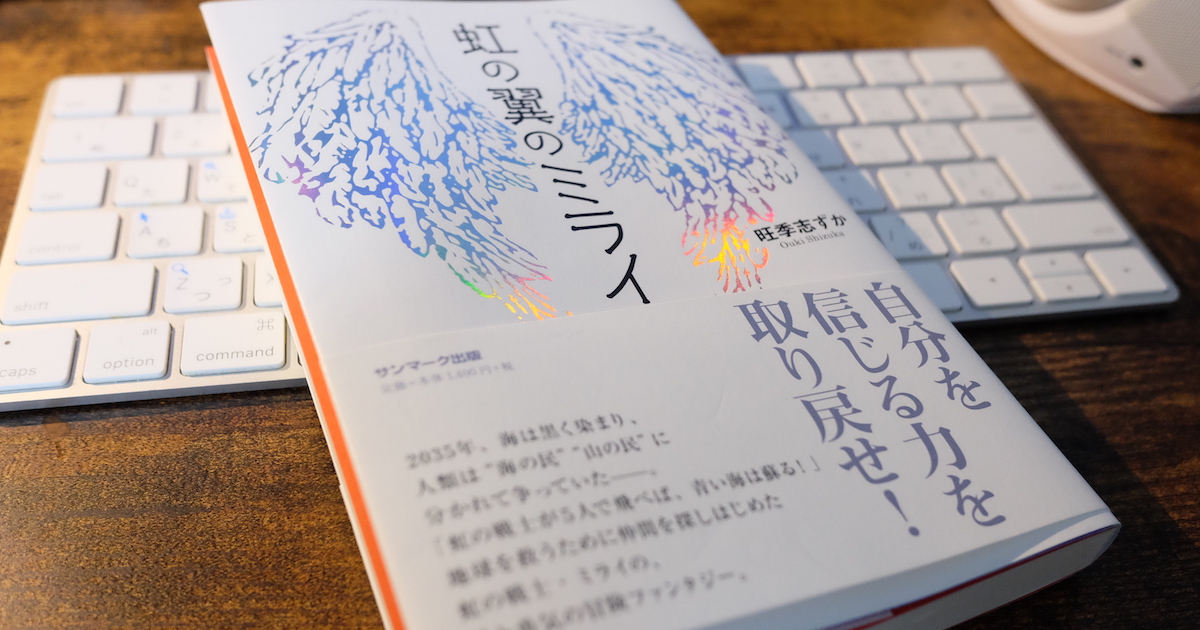 虹の翼のミライ
旺季志ずか
Ouki Shizuka
自分を
信じる力を
取り戻せ!
サンマーク出版
定価=本体 1,400円+税
2035年、海は黒く染まり、
人類は"海の民""山の民"に
分かれて争っていた――。
「虹の戦士が5人で飛べば、青い海は蘇る!」
地球を救うために仲間を探しはじめた
虹の戦士・ミライの、
勇気の冒険ファンタジー。
control
shift
caps
alt
option
⌘
command
Q
W
A
S
Z
つ
っ